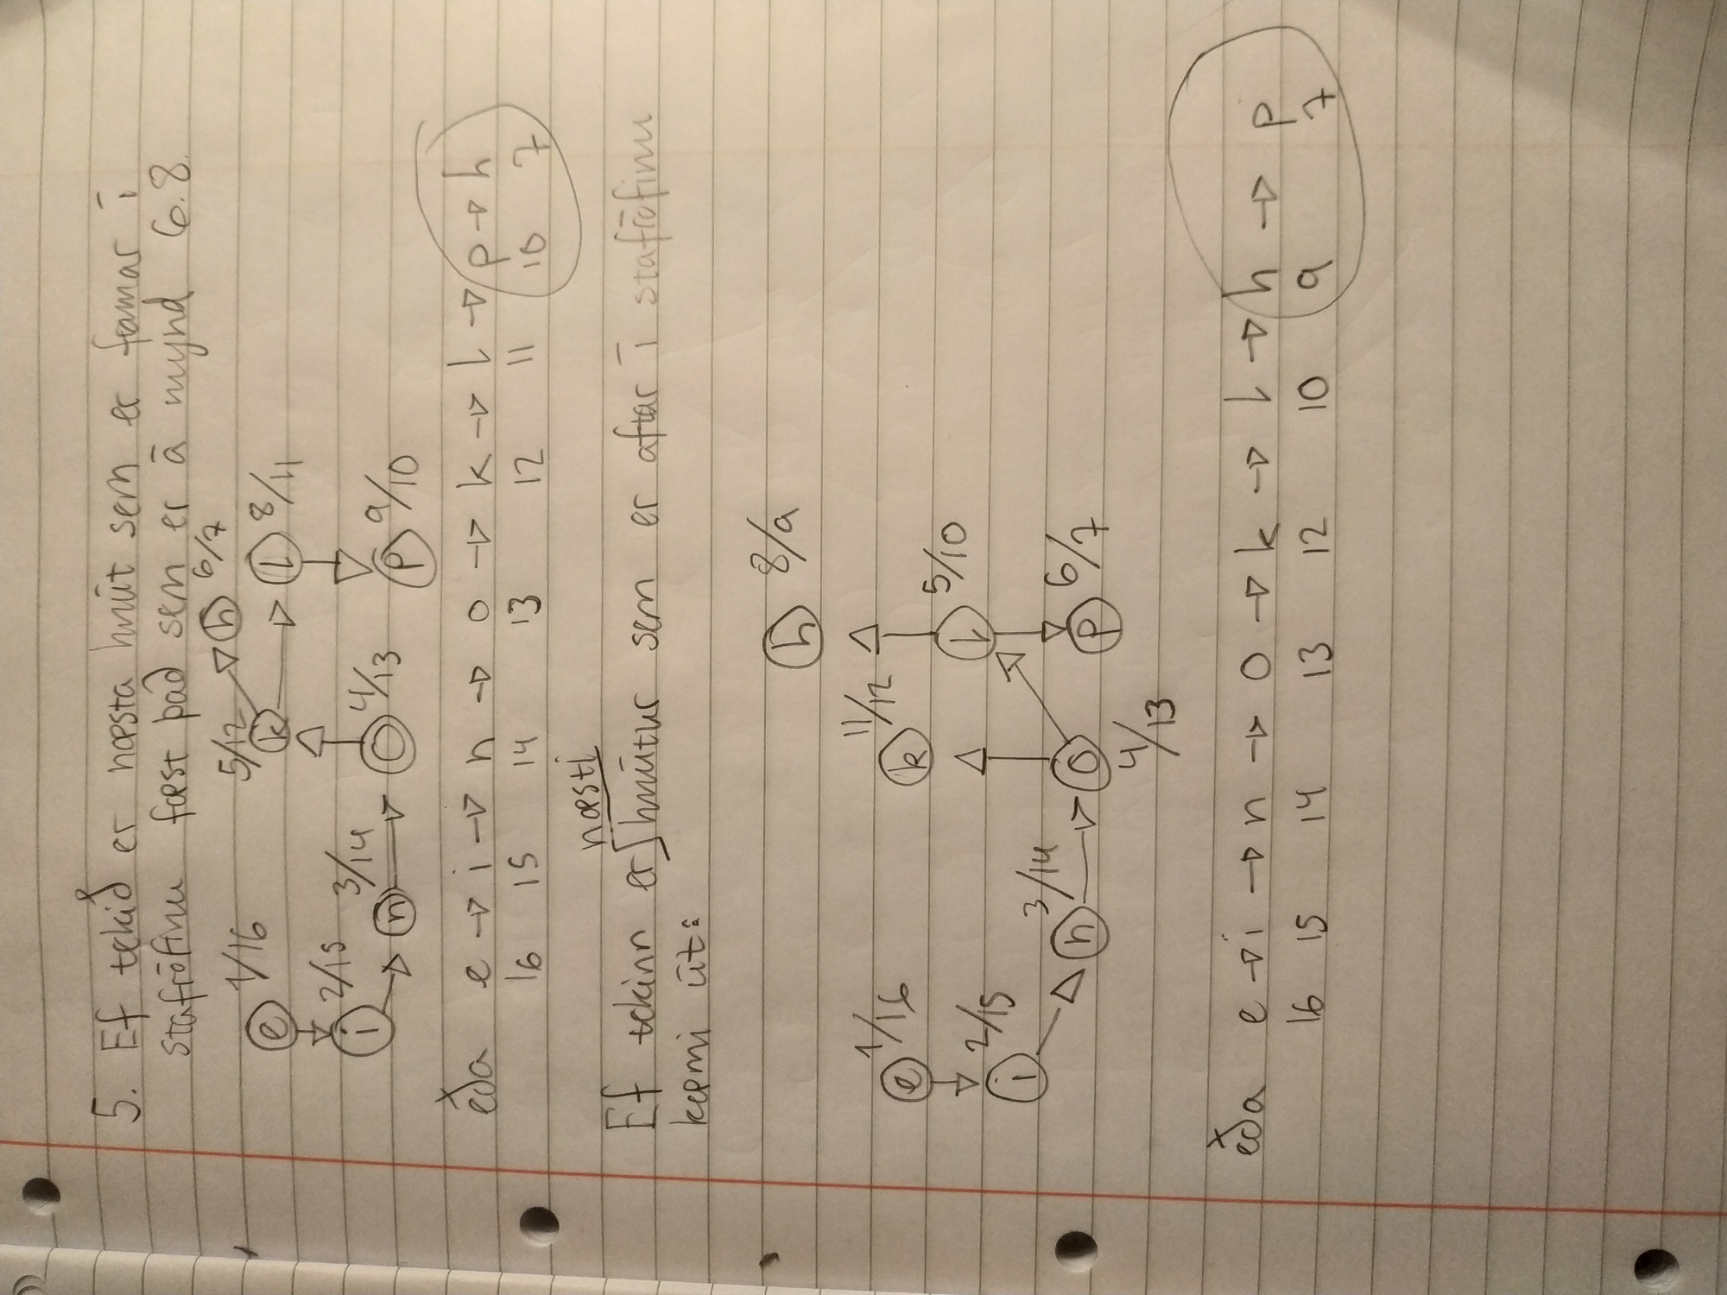 5. Ef tekið er næsta hnút sem er framar í
stafrófinu fæst það sem er á mynd 6.8.
e 1/16 k 5/12 h 6/7 l 8/11
i 2/15 n 3/14 o 4/13 p 9/10
eða e → i → n → o → k → l → p → h
16 15 14 13 12 11 10 7
næsti
Ef tekinn er hnútur sem er aftar í stafrófinu
kæmi út:
h 8/9
e 1/16 k 11/12 l 5/10
i 2/15 n 3/14 o 4/13 p 6/7
eða e → i → n → o → k → l → h → p
16 15 14 13 12 10 9 7